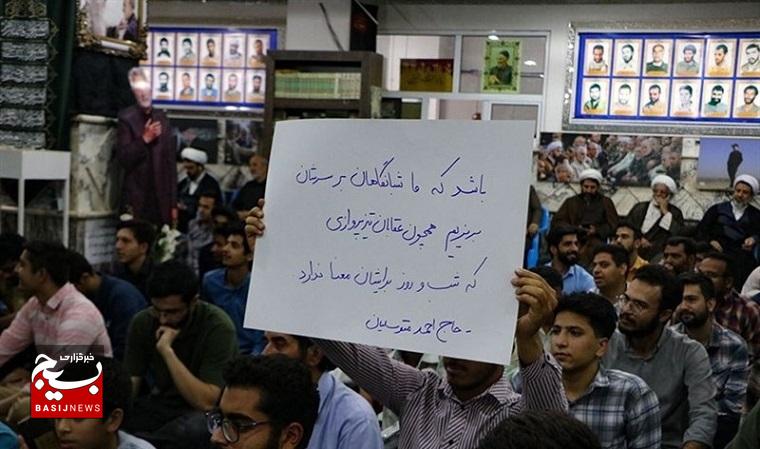 باشد که ما شبانگاهان بر سرتان
بریزیم همچون عقابان تیزپروازی
که شب و روز برایشان معنا ندارد
- حاج احمد متوسلیان
خبرگزاری
بسیج
BASIJNEWS